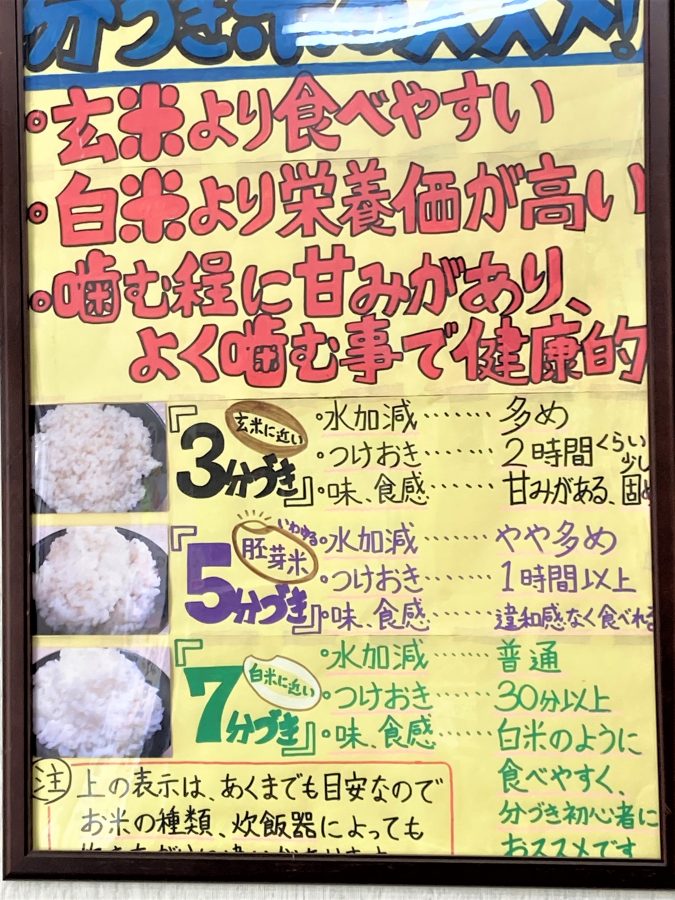 分づき米のススメ!
・玄米より食べやすい
・白米より栄養価が高い
・噛む程に甘みがあり、
よく噛む事で健康的
『3分づき』
玄米に近い
・水加減……多め
・つけおき……2時間くらい
・味、食感……甘みがある、少し固め
『5分づき』
いわゆる
胚芽米
・水加減……やや多め
・つけおき……1時間以上
・味、食感……違和感なく食べれる
『7分づき』
白米に近い
・水加減……普通
・つけおき……30分以上
・味、食感……白米のように
食べやすく、
分づき初心者に
おススメです
注 上の表示は、あくまでも目安なので
お米の種類、炊飯器によっても